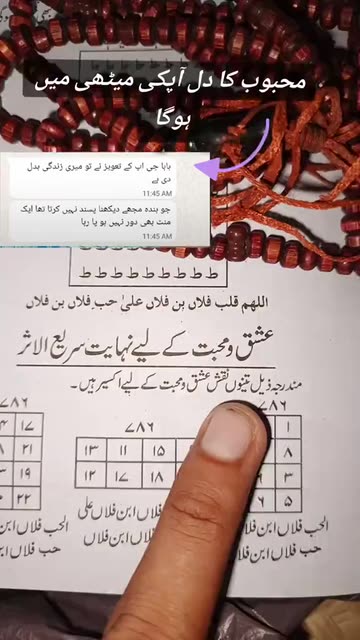 محبوب کا دل آپکی میٹھی میں
ہوگا
بابا جی آپ کے تعویز نے تو میری زندگی بدل
دی ہے
11:45 AM
جو بندہ مجھے دیکھنا پسند نہیں کرتا تھا ایک
منٹ بھی دور نہیں ہو پا رہا
11:45 AM
ط ط ط ط ط ط ط ط ط
اللھم قلب فلاں بن فلاں علیٰ حب فلاں بن فلاں
عشق و محبت کے لیے نہایت سریع الاثر
مندرجہ ذیل تینوں نقش عشق و محبت کے لیے اکسیر ہیں۔
۷۸۶
۷۸۶
۷۸۶
۱
۱۳ ۱۱ ۱۵
۱۷
۸
۲۱
۱۲ ۱۷ ۱۸
۳
۱۹
۵
۲۲
فلاں ابن فلاں علی
فلاں ابن فلاں
الحب فلاں ابن فلاں
حب فلاں ابن
الحب فلاں ابن فلاں
حب فلاں ابن